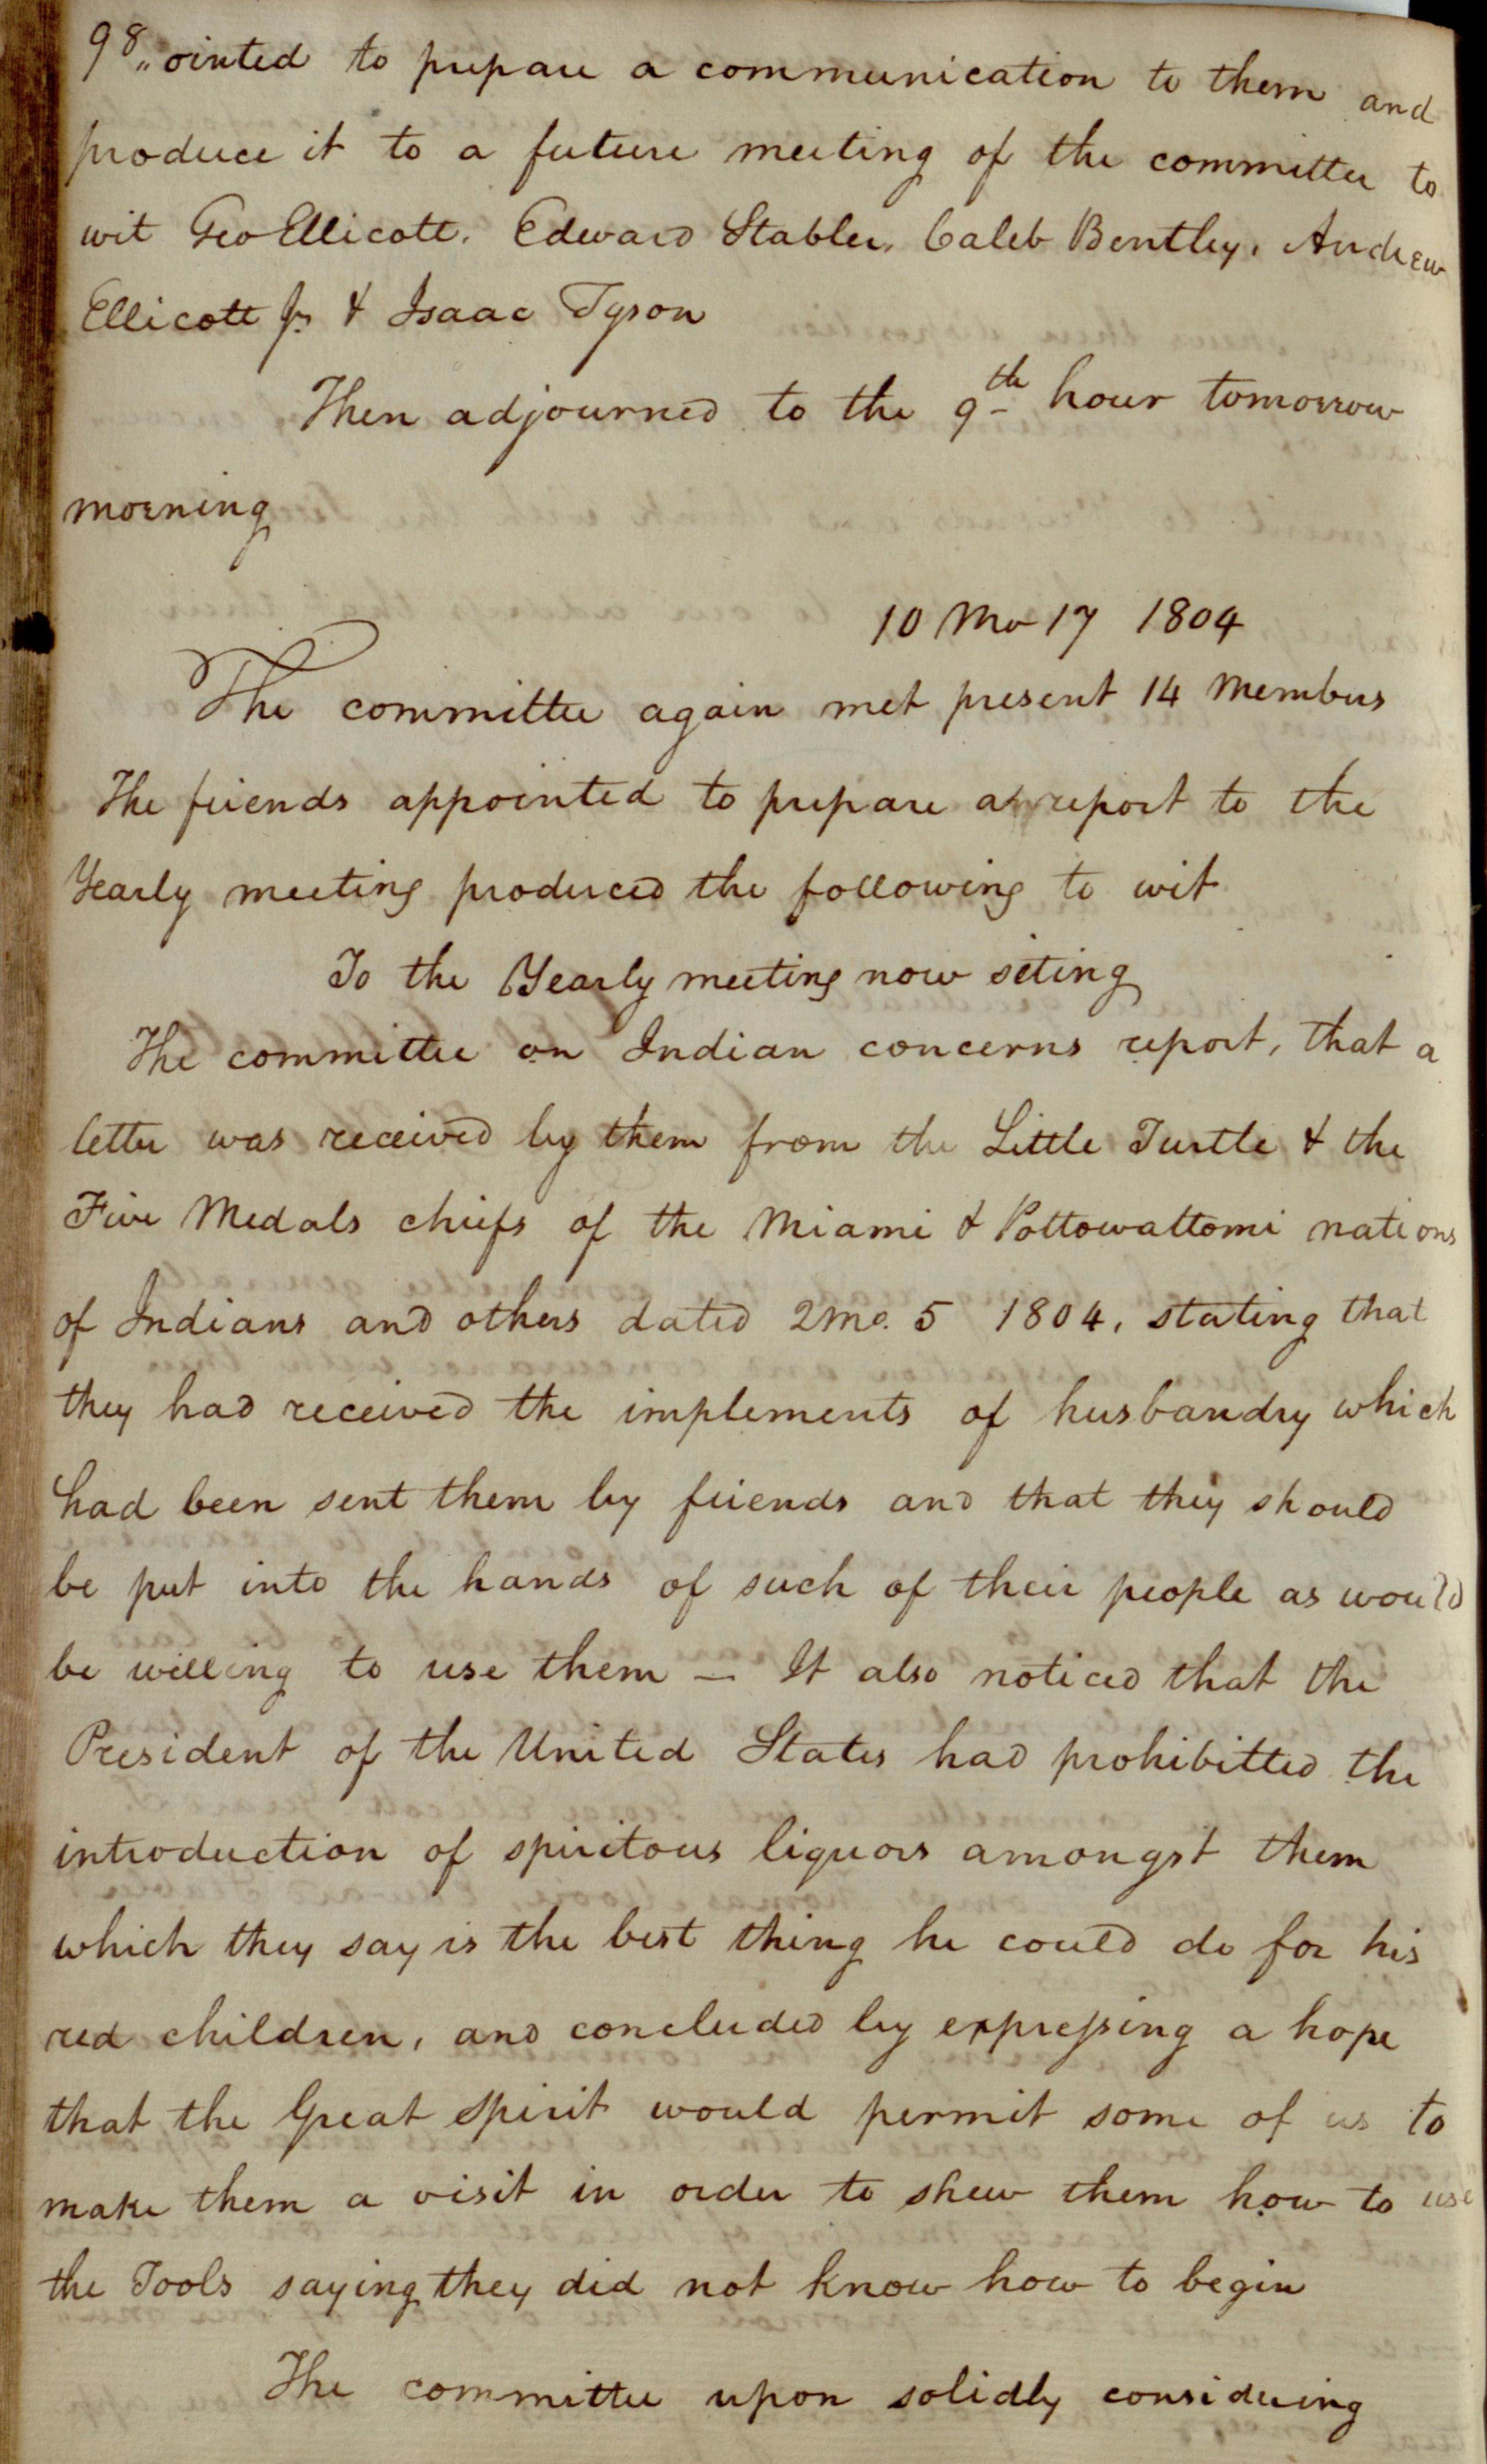 98 „ointed to prepare a communication to them and
produce it to a future meeting of the committee to
wit Geo Ellicott. Edward Stabler, Caleb Bentley, Andrew
Ellicott Jr & Isaac Tyson
Then adjourned to the 9th hour tomorrow
morning
10 Mo 17 1804
The committee again met present 14 members
The friends appointed to prepare a report to the
Yearly meeting produced the following to wit
To the Yearly meeting now seting
The committee on Indian concerns report, that a
letter was received by them from the Little Turtle & the
Five Medals chiefs of the Miami & Pottowattomi nations
of Indians and others dated 2mo. 5 1804, stating that
they had received the implements of husbandry which
had been sent them by friends and that they should
be put into the hands of such of their people as would
be willing to use them — It also noticed that the
President of the United States had prohibitted the
introduction of spiritous liquors amongst them
which they say is the best thing he could do for his
red children, and concluded by expressing a hope
that the Great Spirit would permit some of us to
make them a visit in order to shew them how to use
the Tools saying they did not know how to begin
The committee upon solidly considering